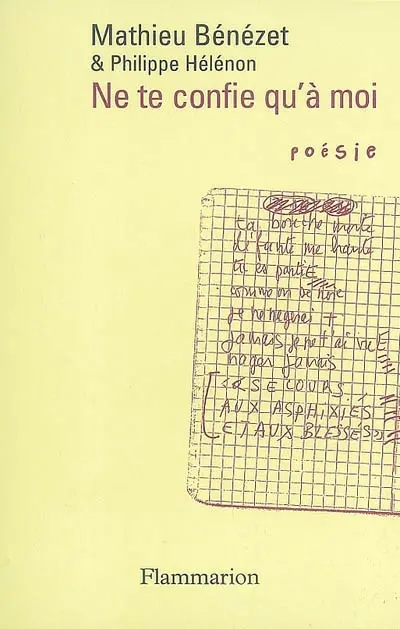 Mathieu Bénézet
& Philippe Hélénon
Ne te confie qu'à moi
poésie
ta bouche morte
défunte me hante
tu es partie
comme on se noie
je ne nageai +
jamais je ne t'ai vuE
nager jamais
<<SECOURS
AUX ASPHIXIÉS
ET AUX BLESSÉS>>
Flammarion